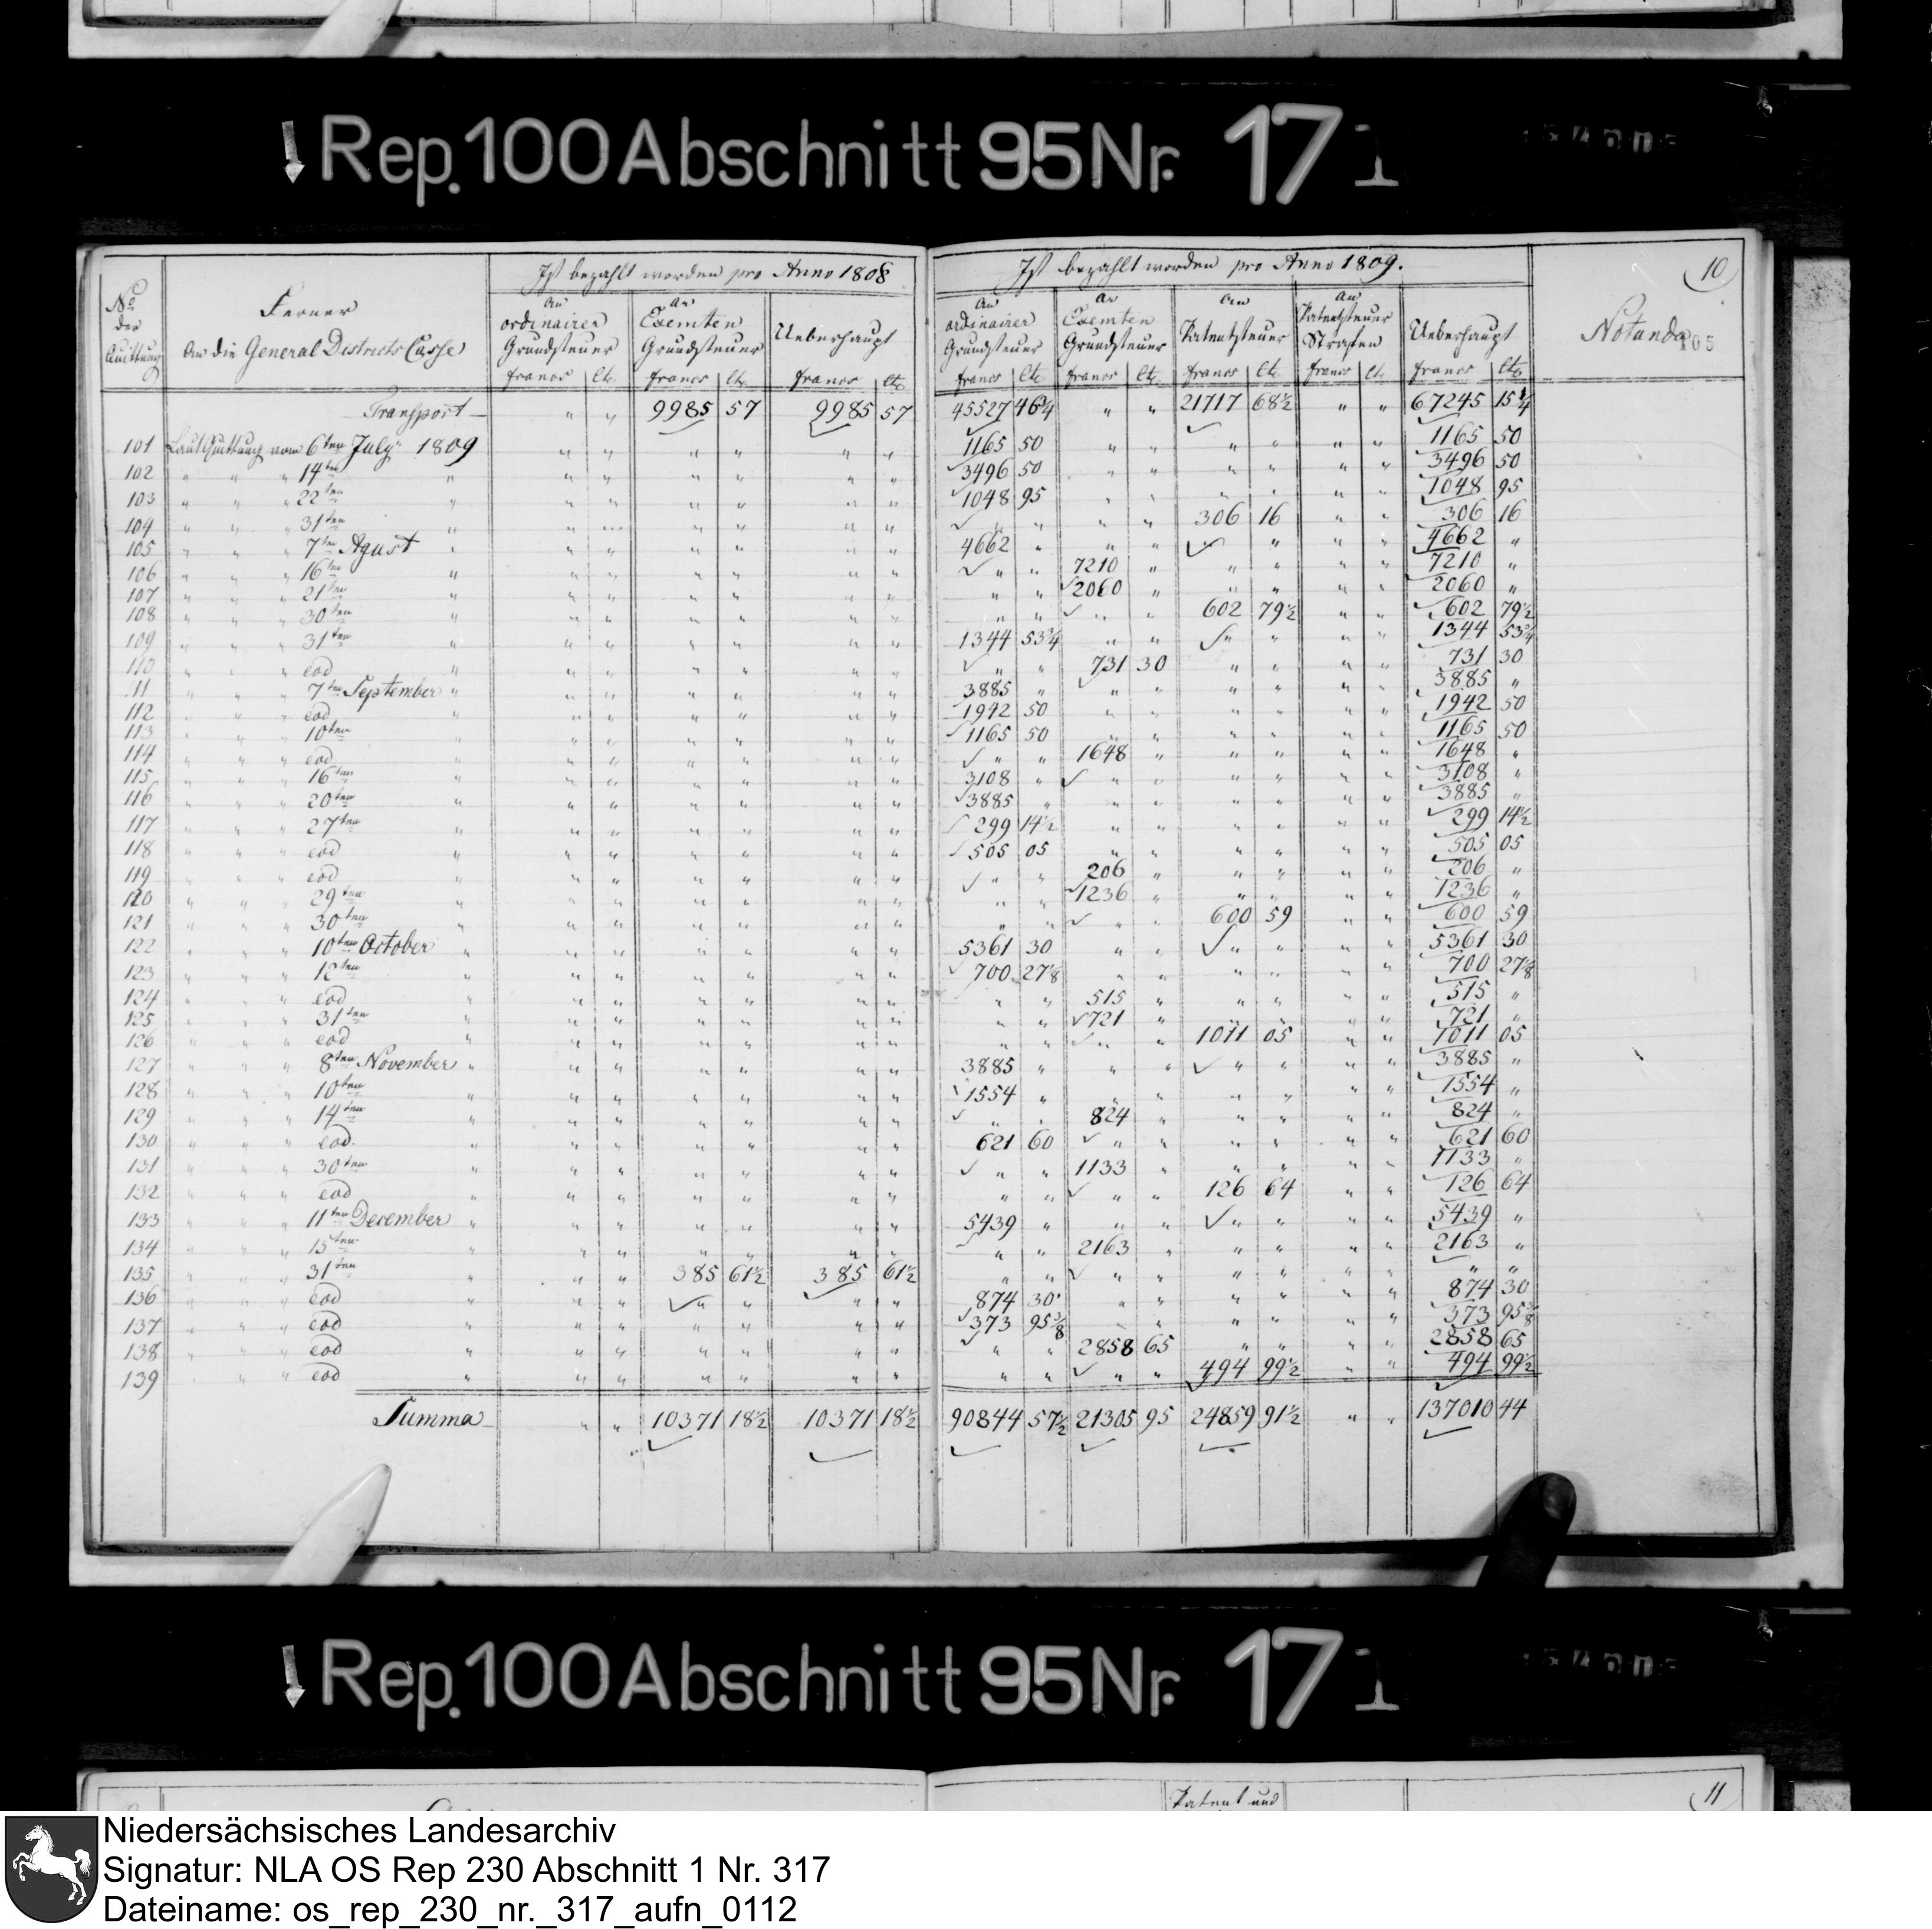 Rep. 100 Abschnitt 95 Nr. 17
Ist bezahlt worden pro Anno 1808
Ist bezahlt worden pro Anno 1809.
10
No der Quittung
Ferner An die General Districts Casse
An ordinairer Grundsteuer
An Exemten Grundsteuer
Ueberhaupt
An ordinairer Grundsteuer
An Exemten Grundsteuer
An Patentsteuer
An Patentsteuer Strafen
Ueberhaupt
Notanda
105
francs Ct. francs Ct. francs Ct. francs Ct. francs Ct. francs Ct. francs Ct. francs Ct.
Transport " " 9985 57 9985 57 45527 46 3/4 " " 21717 68 1/2 " " 67245 15 1/4
101 Laut Quittung vom 6ten July 1809 " " " " " " 1165 50 " " " " " " 1165 50
102 " " " 14ten " " " " " " " 3496 50 " " " " " " 3496 50
103 " " " 22ten " " " " " " " 1048 95 " " " " " " 1048 95
104 " " " 31ten " " " " " " " " " " " 306 16 " " 306 16
105 " " " 7ten Agust " " " " " " " 4662 " " " " " " " 4662 "
106 " " " 16ten " " " " " " " " " 7210 " " " " " 7210 "
107 " " " 21ten " " " " " " " " " 2060 " " " " " 2060 "
108 " " " 30ten " " " " " " " " " " " 602 79 1/2 " " 602 79 1/2
109 " " " 31ten " " " " " " " 1344 53 3/4 " " " " " " 1344 53 3/4
110 " " " eod " " " " " " " " " 731 30 " " " " 731 30
111 " " " 7ten September " " " " " " " 3885 " " " " " " " 3885 "
112 " " " eod " " " " " " " 1942 50 " " " " " " 1942 50
113 " " " 10ten " " " " " " " 1165 50 " " " " " " 1165 50
114 " " " eod " " " " " " " " " 1648 " " " " " 1648 "
115 " " " 16ten " " " " " " " 3108 " " " " " " " 3108 "
116 " " " 20ten " " " " " " " 3885 " " " " " " " 3885 "
117 " " " 27ten " " " " " " " 299 14 1/2 " " " " " " 299 14 1/2
118 " " " eod " " " " " " " 505 05 " " " " " " 505 05
119 " " " eod " " " " " " " " " 206 " " " " " 206 "
120 " " " 29ten " " " " " " " " " 1236 " " " " " 1236 "
121 " " " 30ten " " " " " " " " " " " 600 59 " " 600 59
122 " " " 10ten October " " " " " " " 5361 30 " " " " " " 5361 30
123 " " " 12ten " " " " " " " 700 27 1/8 " " " " " " 700 27 1/8
124 " " " eod " " " " " " " " " 515 " " " " " 515 "
125 " " " 31ten " " " " " " " " " 721 " " " " " 721 "
126 " " " eod " " " " " " " " " " " 1011 05 " " 1011 05
127 " " " 8ten November " " " " " " " 3885 " " " " " " " 3885 "
128 " " " 10ten " " " " " " " 1554 " " " " " " " 1554 "
129 " " " 14ten " " " " " " " " " 824 " " " " " 824 "
130 " " " eod. " " " " " " " 621 60 " " " " " " 621 60
131 " " " 30ten " " " " " " " " " 1133 " " " " " 1133 "
132 " " " eod " " " " " " " " " " " 126 64 " " 126 64
133 " " " 11ten December " " " " " " " 5439 " " " " " " " 5439 "
134 " " " 15ten " " " " " " " " " 2163 " " " " " 2163 "
135 " " " 31ten " " " 385 61 1/2 385 61 1/2 " " " " " " " " " "
136 " " " eod " " " " " " " 874 30 " " " " " " 874 30
137 " " " eod " " " " " " " 373 95 3/8 " " " " " " 373 95 3/8
138 " " " eod " " " " " " " " " 2858 65 " " " " 2858 65
139 " " " eod " " " " " " " " " " " 494 99 1/2 " " 494 99 1/2
Summa " " 10371 18 1/2 10371 18 1/2 90844 57 1/2 21305 95 24859 91 1/2 " " 137010 44
Rep. 100 Abschnitt 95 Nr. 17
Patent und
11
Niedersächsisches Landesarchiv
Signatur: NLA OS Rep 230 Abschnitt 1 Nr. 317
Dateiname: os_rep_230_nr._317_aufn_0112